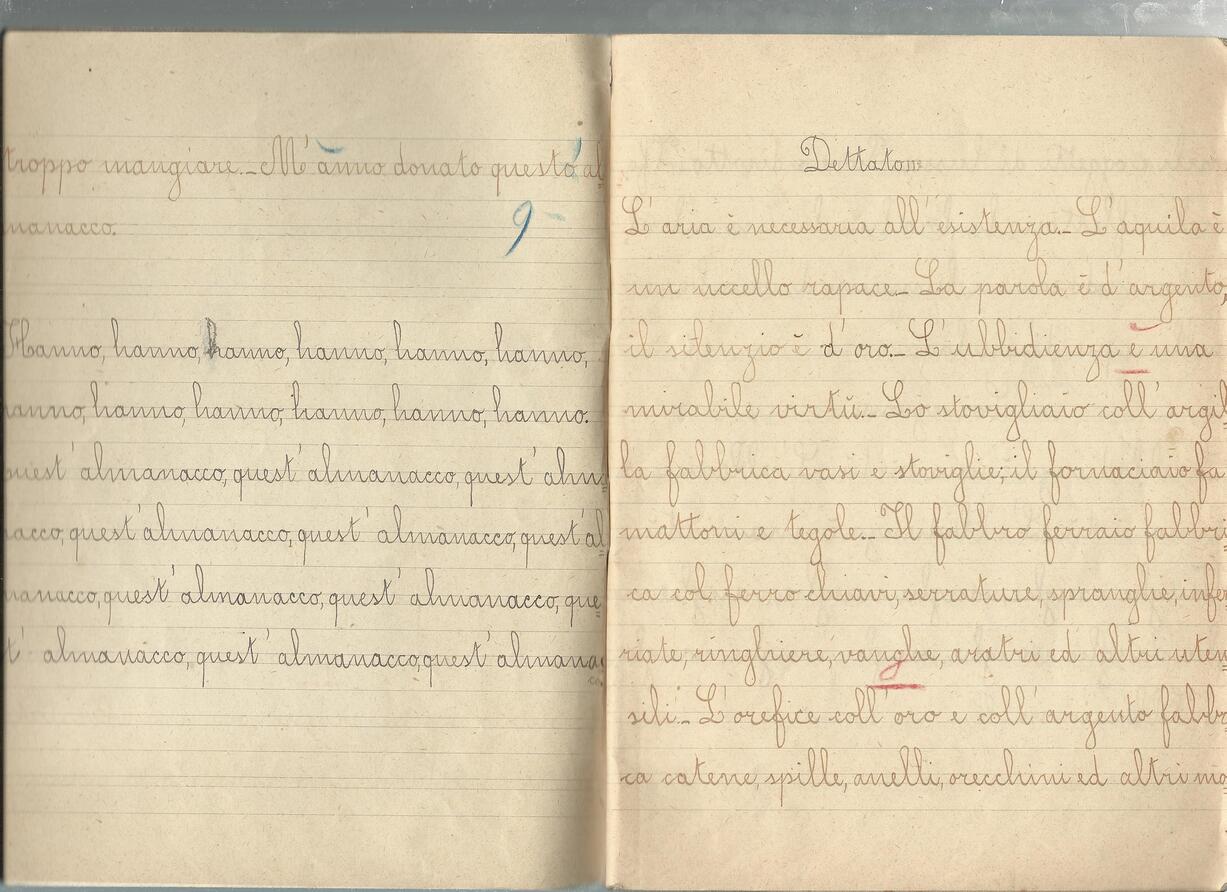 troppo mangiare.- M'ànno donato questo al
manacco.
9-
Hanno, hanno, hanno, hanno, hanno, hanno,
hanno, hanno, hanno, hanno, hanno, hanno.
quest' almanacco, quest' almanacco, quest' alma=
nacco, quest' almanacco, quest' almanacco, quest' al=
manacco, quest' almanacco, quest' almanacco, que=
t' almanacco, quest' almanacco, quest' almana=
co.
Dettato
L'aria è necessaria all'esistenza.- L'aquila è
un uccello rapace.- La parola è d'argento,
il silenzio è d'oro.- L'ubbidienza è una
mirabile virtù.- Lo stovigliaio coll'argil=
la fabbrica vasi e stoviglie; il fornaciaio fa
mattoni e tegole.- Il fabbro ferraio fabbri
ca col ferro chiavi, serrature, spranghe, infer
riate, ringhiere, vanghe, aratri ed altri uten=
sili.- L'orefice coll'oro e coll'argento fabbr
ca catene, spille, anelli, orecchini ed altri mo=